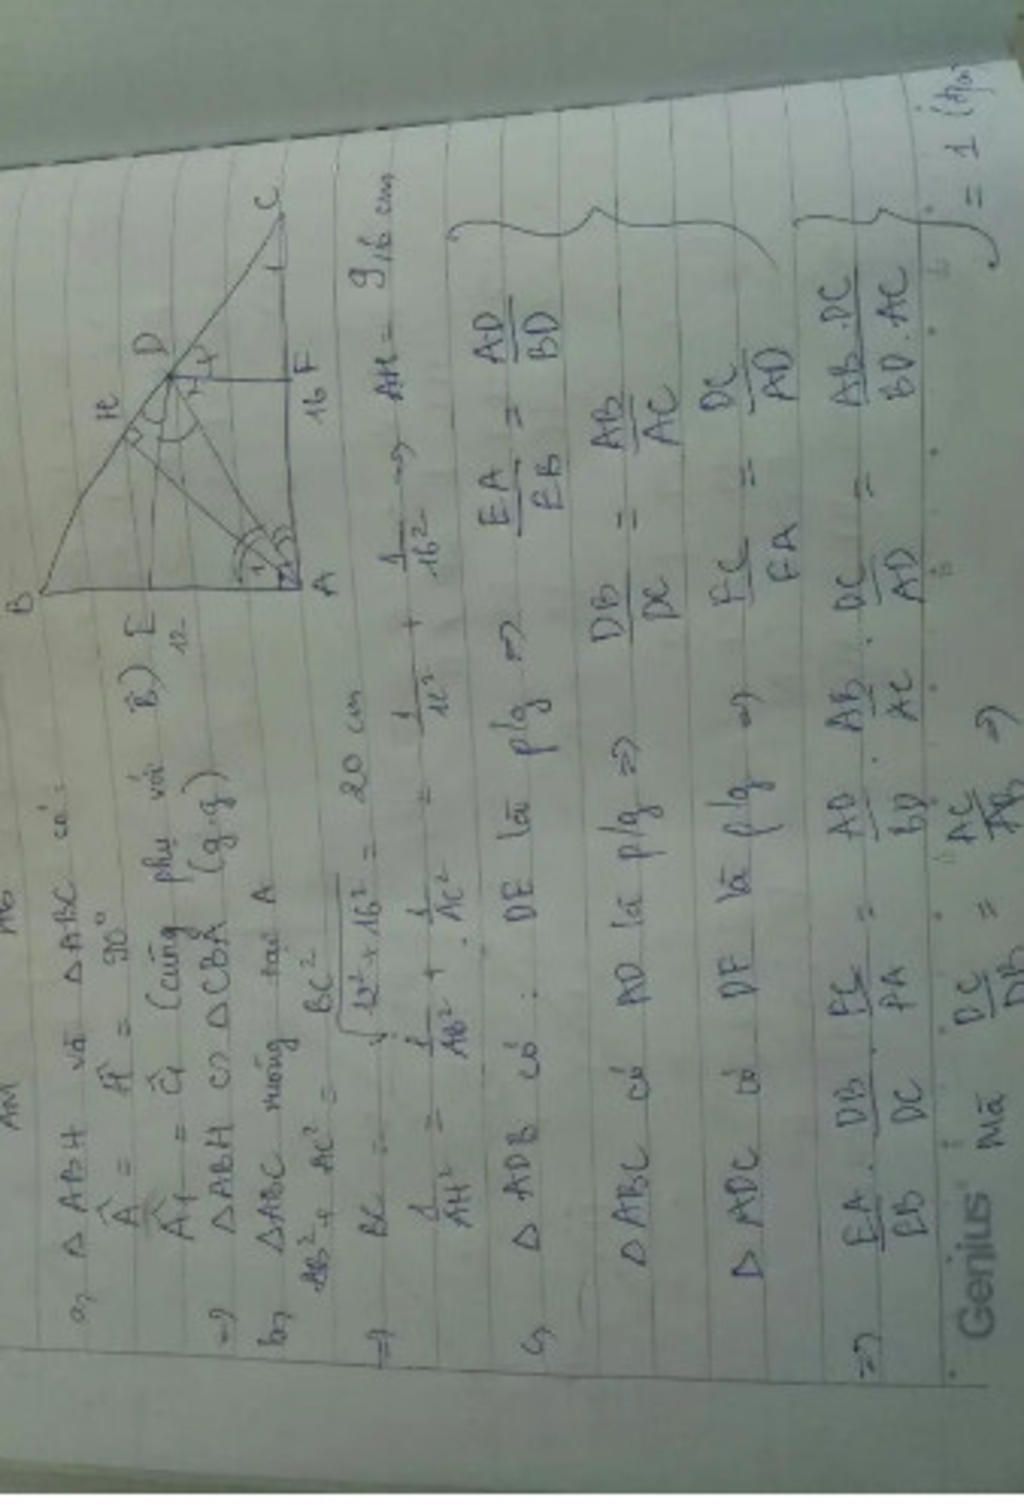 AM AB
a, Δ ABH và Δ ABC có:
Â = Ĥ = 90°
Â1 = Ĉ1 (cùng phụ với B̂)
=) Δ ABH ∽ Δ CBA (g.g)
B
H
D
C
E
12
A
16 F
b, Δ ABC vuông tại A
AB² + AC² = BC²
=) BC = √12² + 16² = 20 cm
1/AH² = 1/AB² + 1/AC² = 1/12² + 1/16² => AH = 9,6 cm
c, Δ ADB có: DE là p/g => EA/EB = AD/BD
Δ ABC có AD là p/g => DB/DC = AB/AC
Δ ADC có DF là p/g => FC/FA = DC/AD
=) EA/EB . DB/DC . FC/FA = AD/BD . AB/AC . DC/AD = AB.DC/BD.AC
Mà DC/DB = AC/AB => = 1
Genius